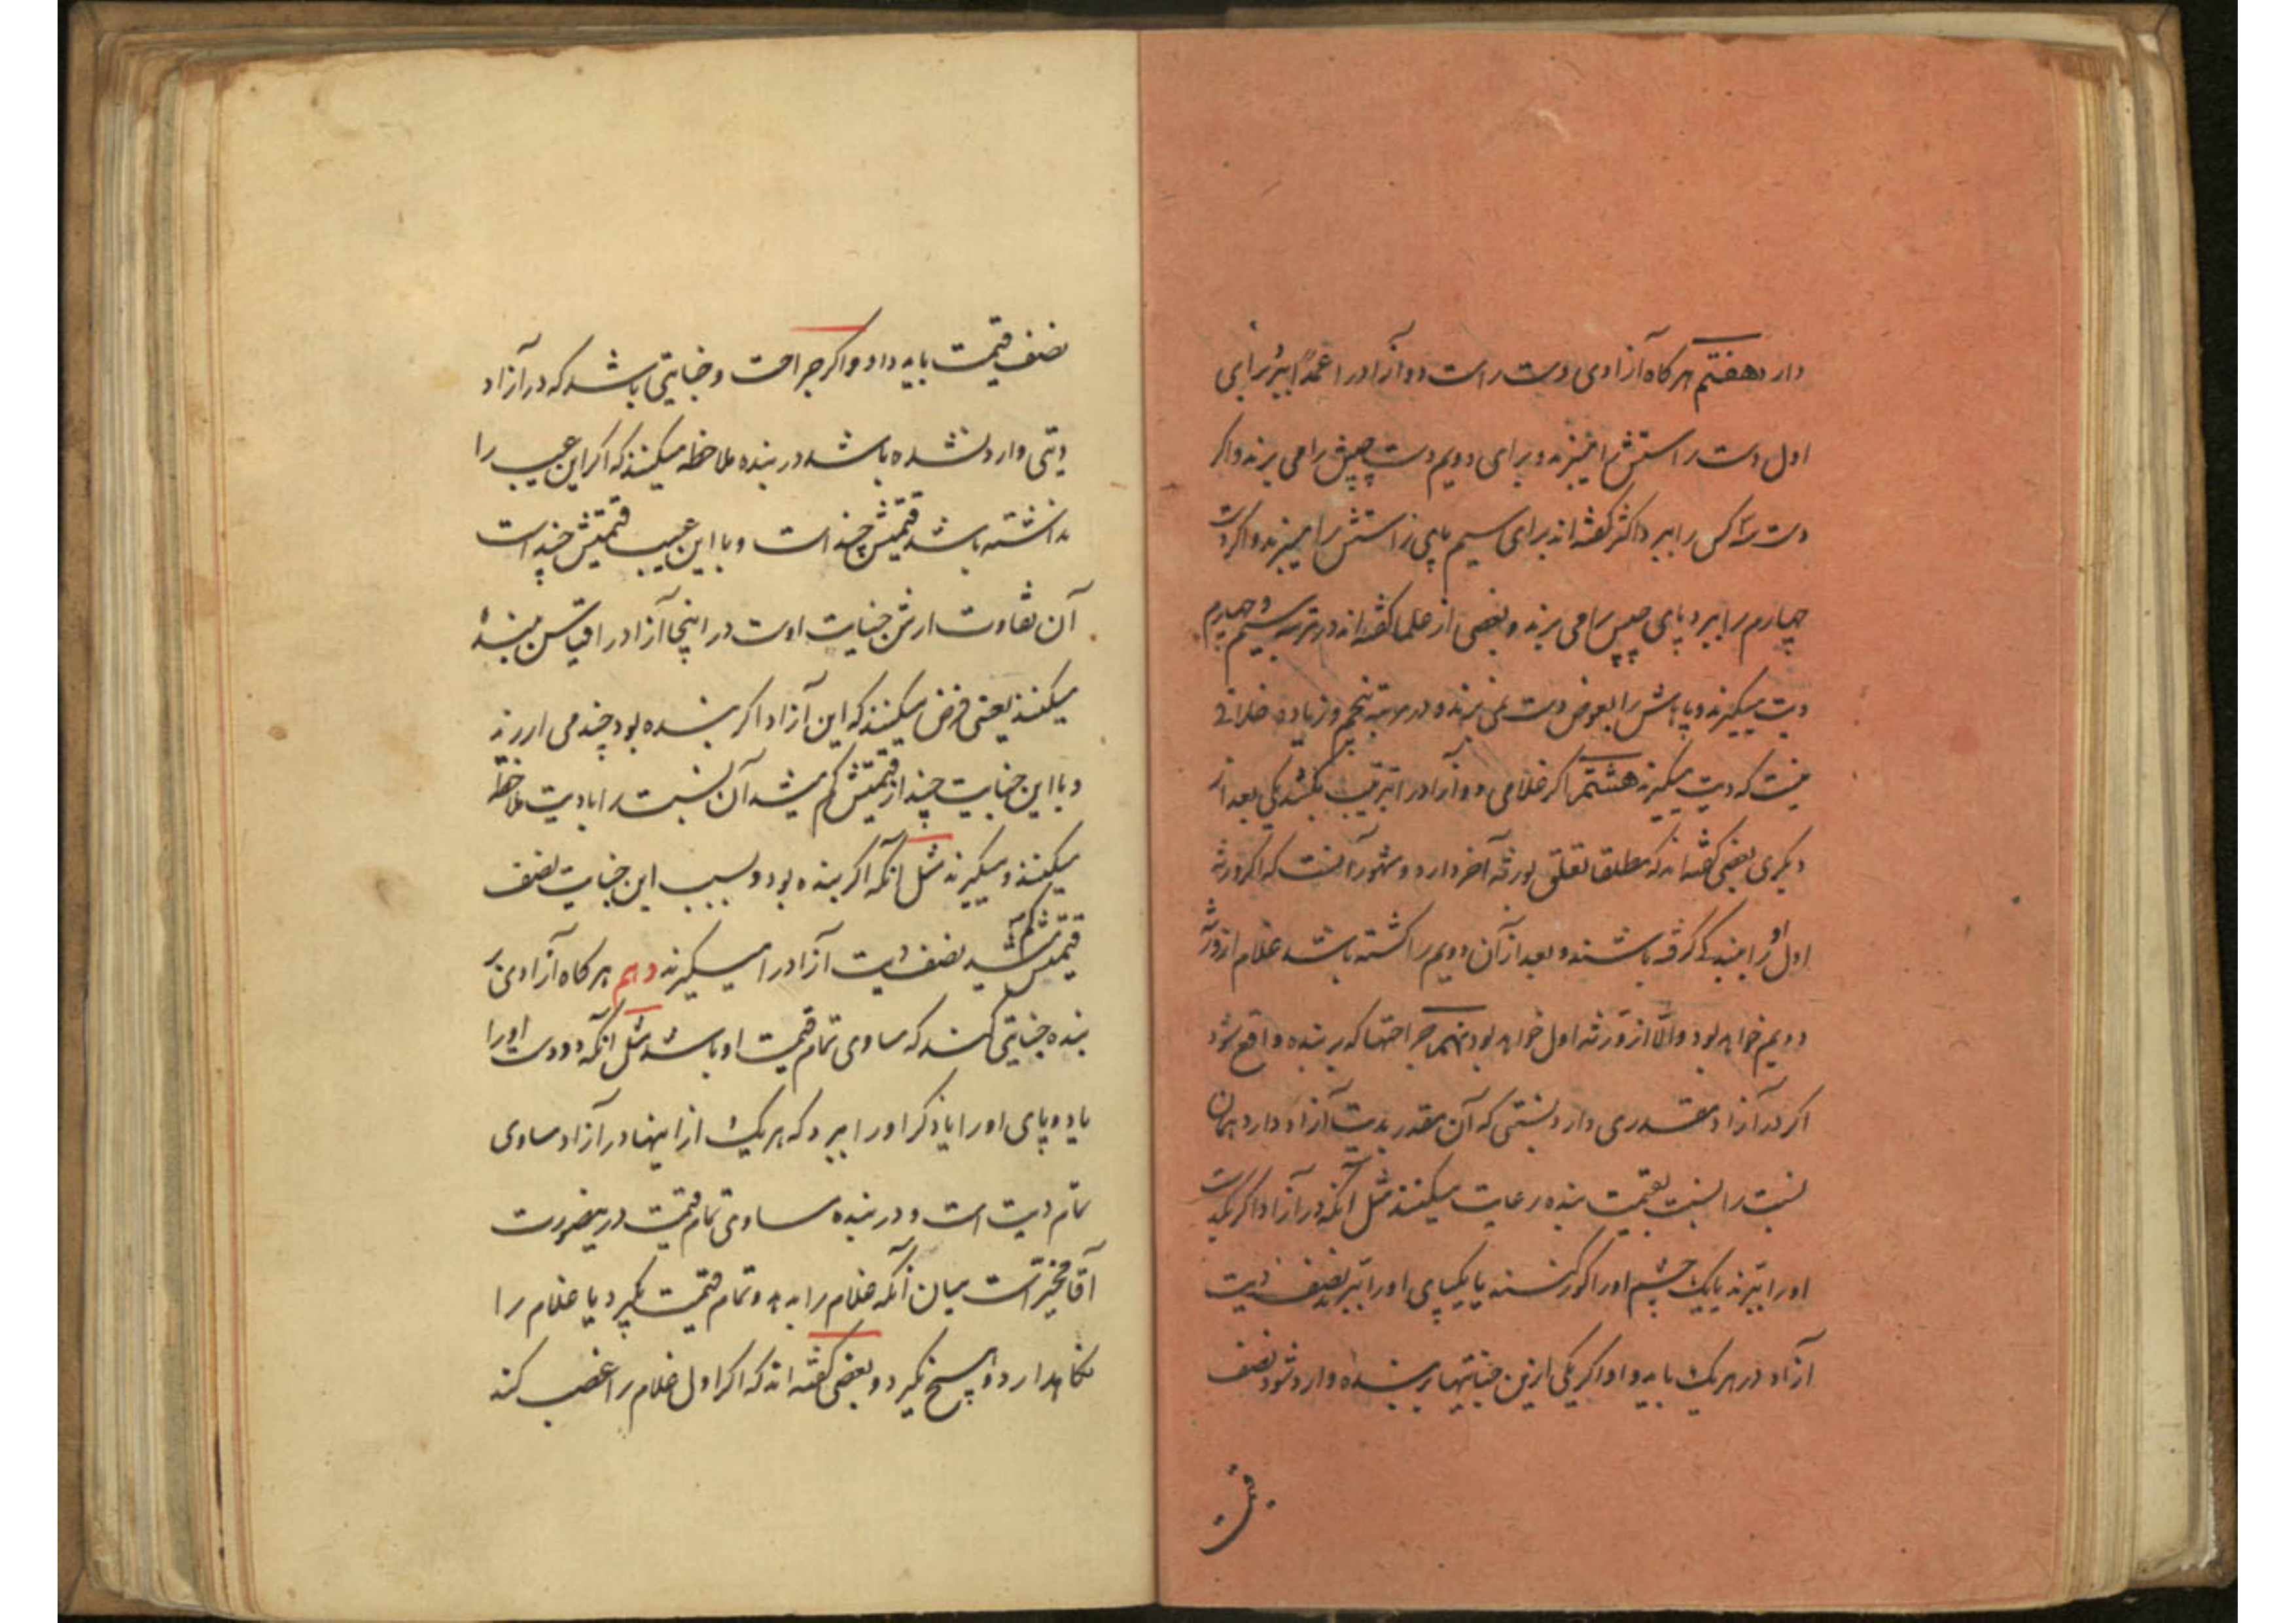 دارد هفتم هرگاه آزادی دست راست دو آزاد را عمداً ببرد برای
اول دست راستش را میبرند و برای دویم دست چپش را می برند و اگر
دست سه کس را ببرد اکثر گفته اند برای سیم پای راستش را میبرند و اگر دست
چهارم را ببرد پای چپش را می برند و بعضی از علما گفته اند در مرتبه سیم و چهارم
دیت میگیرند و پایش را بعوض دست نمی برند و در مرتبه پنجم و زیاده خلافی
نیست که دیت میگیرند هشتم اگر غلامی دو آزاد را بترتیب بکشد یکی بعد از
دیگری بعضی گفته اند که مطلقا تعلق بورثه آخر دارد و مشهور آنست که اگر ورثه
اول او را ببندگی گرفته باشند و بعد از آن دویم را کشته باشد غلام از ورثه
دویم خواهد بود والّا از ورثه اول خواهد بود نهم جراحتها که بر بنده واقع شود
اگر در آزاد مقدری دارد بنسبتی که آن مقدر بدیت آزاد دارد همان
نسبت را نسبت بقیمت بنده رعایت میکنند مثل آنکه در آزاد اگر یکدست
او را ببرند یا یک چشم او را کور کنند یا یکپای او را ببرند نصف دیت
آزاد در هر یک باید داد اگر یکی ازین جنایتها بر بنده وارد شود نصف
نصف قیمت باید داد و اگر جراحت و جنایتی باشد که در آزاد
دیتی وارد نشده باشد در بنده ملاحظه میکنند که اگر این عیب را
نداشته باشد قیمتش چند است و با این عیب قیمتش چند است
آن تفاوت ارش جنایت اوست در اینجا آزاد را قیاس ببنده
میکنند یعنی فرض میکنند که این آزاد اگر بنده بود چند می ارزید
و با این جنایت چند از قیمتش کم میشد آن نسبت را با دیت ملاحظه
میکنند و میگیرند مثل آنکه اگر بنده بود و بسبب این جنایت نصف
قیمتش کم میشد نصف دیت آزاد را میگیرند دهم هرگاه آزادی بر
بنده جنایتی کند که مساوی تمام قیمت او باشد مثل آنکه دو دست او را
یا دو پای او را یا ذکر او را ببرد که هر یک از اینها در آزاد مساوی
تمام دیت است و در بنده مساوی تمام قیمت درینصورت
آقا مخیر است میان آنکه غلام را بدهد و تمام قیمت بگیرد یا غلام را
نگاهدارد و هیچ نگیرد و بعضی گفته اند که اگر اول غلام را غصب کند